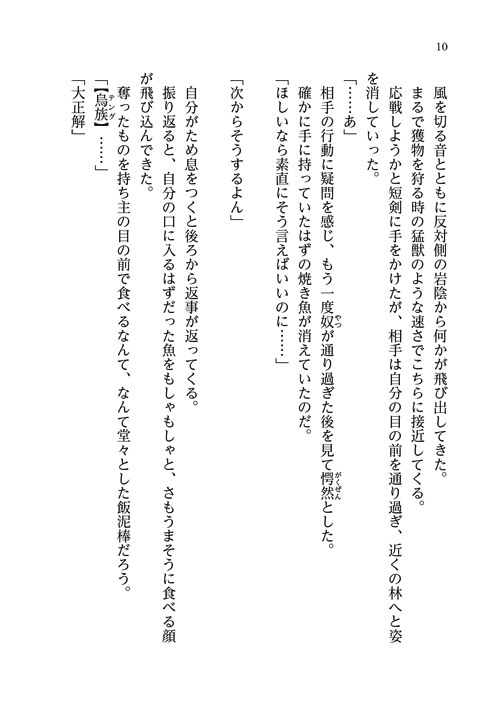 10
風を切る音とともに反対側の岩陰から何かが飛び出してきた。
まるで獲物を狩る時の猛獣のような速さでこちらに接近してくる。
応戦しようかと短剣に手をかけたが、相手は自分の目の前を通り過ぎ、近くの林へと姿
を消していった。
「……あ」
相手の行動に疑問を感じ、もう一度奴が通り過ぎた後を見て愕然とした。
やつ
がくぜん
確かに手に持っていたはずの焼き魚が消えていたのだ。
「ほしいなら素直にそう言えばいいのに……」
「次からそうするよん」
自分がため息をつくと後ろから返事が返ってくる。
振り返ると、自分の口に入るはずだった魚をもしゃもしゃと、さもうまそうに食べる顔
が飛び込んできた。
奪ったものを持ち主の目の前で食べるなんて、なんて堂々とした飯泥棒だろう。
「【烏族】……」
テング
「大正解」